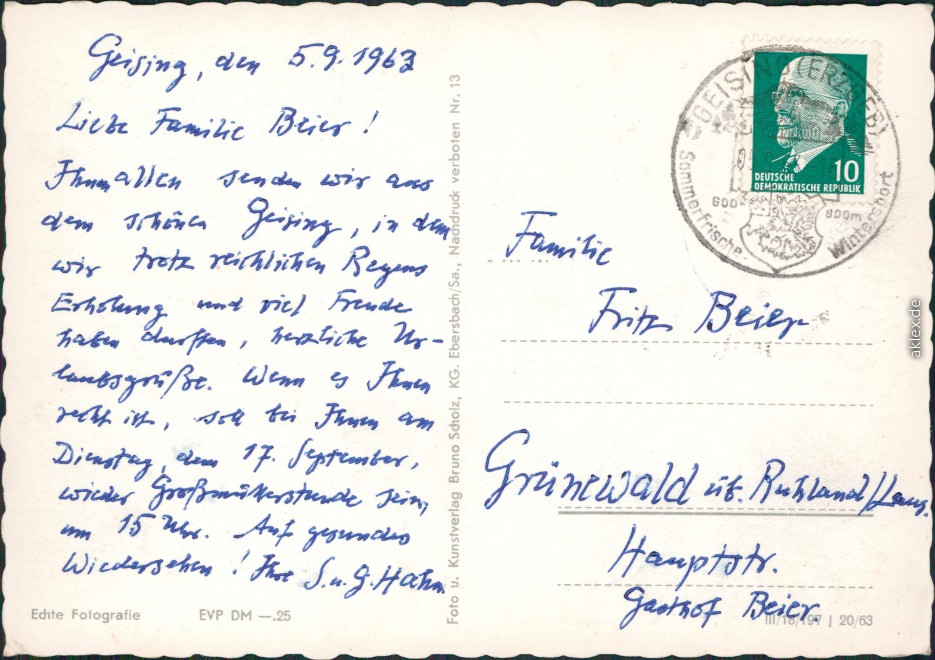 Geising, den 5.9.1963
Liebe Familie Beier!
Ihnen allen senden wir aus
dem schönen Geising, in dem
wir trotz reichlichen Regens
Erholung und viel Freude
haben durften, herzliche Ur-
laubsgrüße. Wenn es Ihnen
recht ist, soll bei Ihnen am
Dienstag, dem 17. September,
wieder Großmütterstunde sein,
um 15 Uhr. Auf gesundes
Wiedersehen! Ihre S. u. G. Hahn.
Echte Fotografie EVP DM —.25
Foto u. Kunstverlag Bruno Scholz, KG. Ebersbach/Sa., Nachdruck verboten Nr. 13
GEISING (ERZGEB)
600 800m
Sommerfrische - Wintersport
10
DEUTSCHE
DEMOKRATISCHE REPUBLIK
Familie
Fritz Beier
Grünewald üb. Ruhland/Laus.
Hauptstr.
Gasthof Beier.
III/18/197 | 20/63
aklex.de